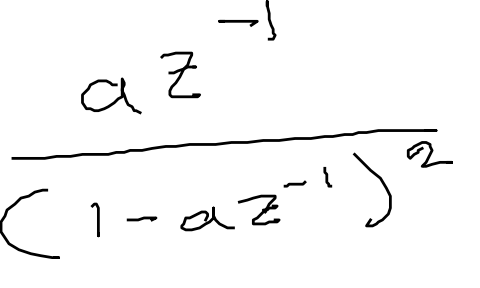 az^{-1}
(1-az^{-1})^2